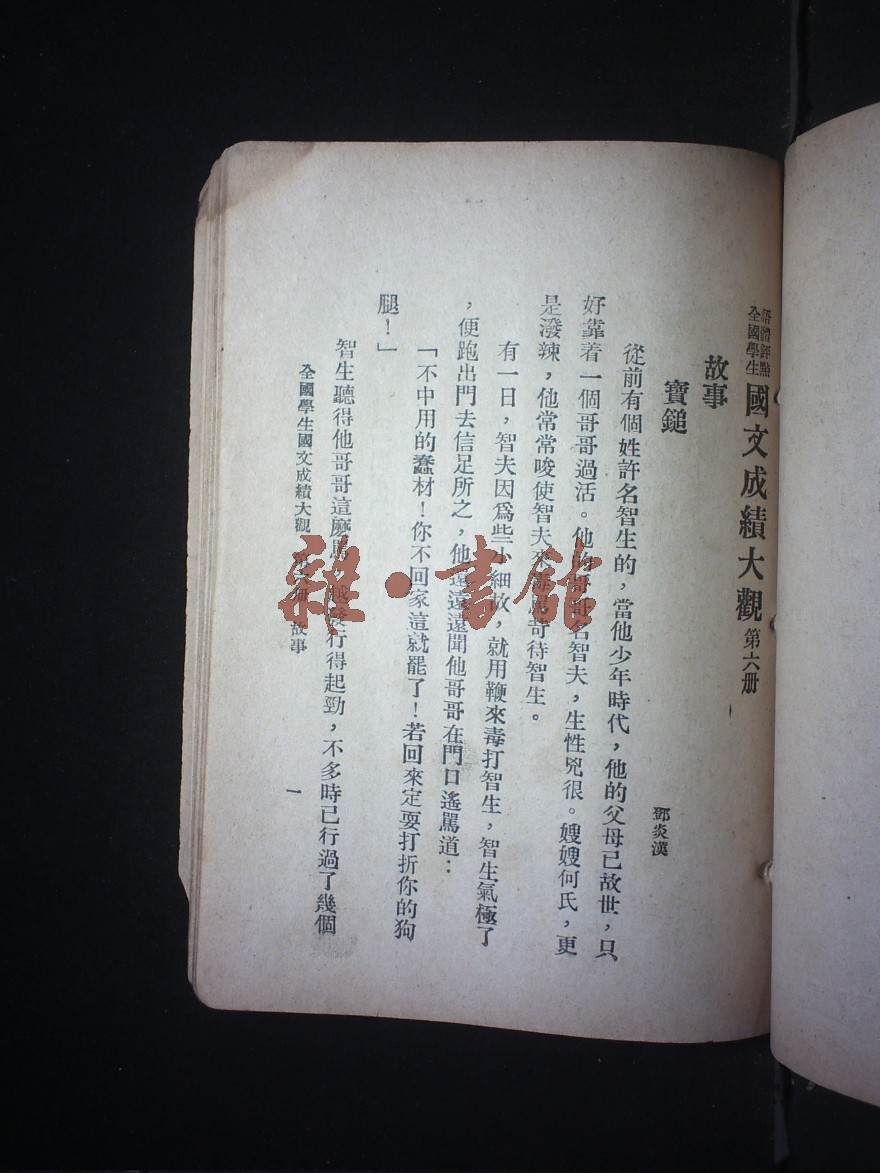 語體評點
全國學生
國文成績大觀 第六册
故事
寶鎚
鄧炎漢
從前有個姓許名智生的，當他少年時代，他的父母已故世，只
好靠着一個哥哥過活。他的哥哥名智夫，生性兇很。嫂嫂何氏，更
是潑辣，他常常唆使智夫來毒罵苛待智生。
有一日，智夫因爲些小細故，就用鞭來毒打智生，智生氣極了
，便跑出門去信足所之，他還遠遠聞他哥哥在門口遙罵道：
「不中用的蠢材！你不回家這就罷了！若回來定要打折你的狗
腿！」
智生聽得他哥哥這麼罵，越發行得起勁，不多時已行過了幾個
全國學生國文成績大觀 册 故事
一
雜·書館